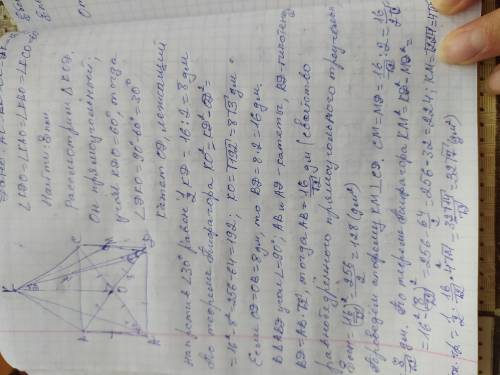 ∠KDO=∠KAO=∠KBO=∠KCO
Найти: 8 пи
Рассмотрим △KOD.
Он прямоугольный,
угол KDO=60°, тогда
∠DKO=90-60°=30°
Катет OD, лежащий
напротив ∠30° равен ½ KD = 16:2=8дм
По теореме Пифагора KO²=KD²-OD²=
=16²-8²=256-64=192; KO=√192=8√3 дм.
Если OD=OB=8дм, то BD=8·2=16дм.
В △ABD угол ∠=90°, AB и AD - катеты, BD-гипотенуза
BD=AB·√2, тогда AB=16/√2 дм (свойство
равнобедренного прямоугольного треугольн
=(16/√2)²=256/2=128 (дм²)
Проведём апофему KM⊥CD. CM=MD=16/√2:2=16/2√2
8/√2 дм. По теореме Пифагора KM²=KD²-MD²=
=16²-(8/√2)²=256-64/2=256-32=224; KM=√224=4√14
½·16/√2·4√14=32√14/√2=32√7 (дм²)
A
B
C
K
O